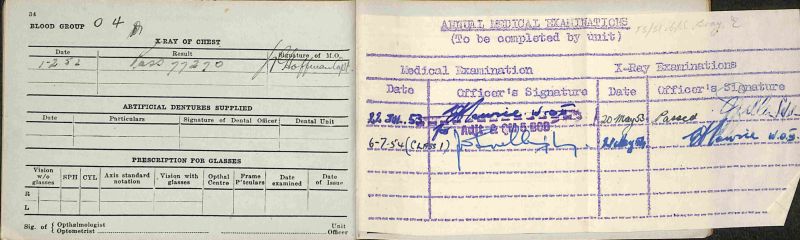 34
BLOOD GROUP O 4
X-RAY OF CHEST
Date Result Signature of M.O.
1-2-52 Pass 77270 Hoffman Capt.
ARTIFICIAL DENTURES SUPPLIED
Date Particulars Signature of Dental Officer Dental Unit
PRESCRIPTION FOR GLASSES
Vision w/o glasses SPH CYL Axis standard notation Vision with glasses Opthal Centre Frame P'ticulars Date examined Date of Issue
R
L
Sig. of { Opthalmologist Unit
Optometrist Officer
ANNUAL MEDICAL EXAMINATIONS
(To be completed by unit)
Medical Examination X-Ray Examinations
Date Officer's Signature Date Officer's Signature
22 Jul. 53 20 May 53 Passed
6-7-54 (CLASS 1)